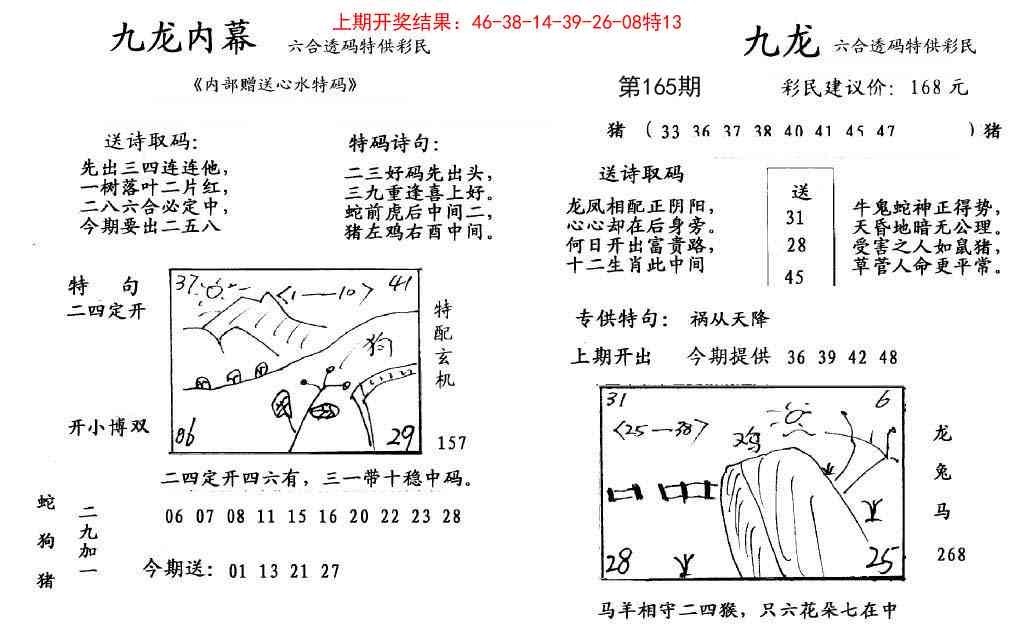 上期开奖结果：46-38-14-39-26-08特13
九龙内幕 六合透码特供彩民
《内部赠送心水特码》
送诗取码：
先出三四连连他，
一树落叶二片红，
二八六合必定中，
今期要出二五八
特码诗句：
二三好码先出头，
三九重逢喜上好。
蛇前虎后中间二，
猪左鸡右酉中间。
特 句
二四定开
开小博双
37
〈1—10〉
41
狗
06
29
特配玄机
157
二四定开四六有，三一带十稳中码。
蛇
狗
猪
二九加一
06 07 08 11 15 16 20 22 23 28
今期送：01 13 21 27
九龙 六合透码特供彩民
第165期 彩民建议价：168 元
猪（33 36 37 38 40 41 45 47 ）猪
送诗取码
龙凤相配正阴阳，
心心却在后身旁。
何日开出富贵路，
十二生肖此中间
送
31
28
45
牛鬼蛇神正得势，
天昏地暗无公理。
受害之人如鼠猪，
草菅人命更平常。
专供特句： 祸从天降
上期开出 今期提供 36 39 42 48
31
6
〈25—38〉
鸡
28
25
龙
兔
马
268
马羊相守二四猴，只六花朵七在中